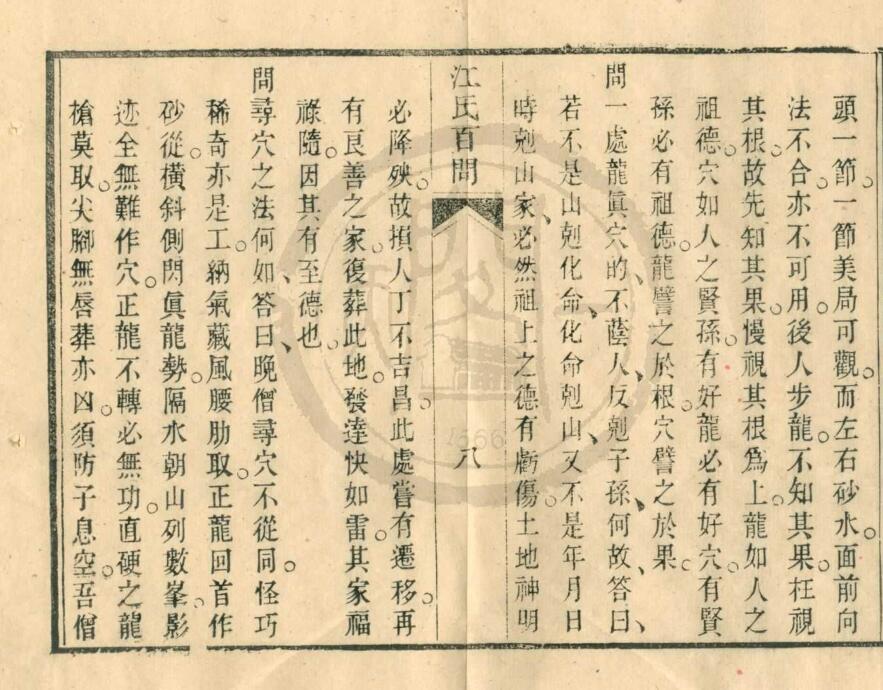 頭一節。一節美局可觀。而左右砂水。面前向
法不合。亦不可用。後人步龍。不知其果。枉視
其根。故先知其果。慢視其根爲上。龍如人之
祖德。穴如人之賢孫。有好龍必有好穴。有賢
孫必有祖德。龍譬之於根。穴譬之於果。
問一處龍眞穴的、不蔭人、反剋子孫、何故、答曰、
若不是山剋化命、化命剋山、又不是年月日
時剋山家、必然祖上之德有虧傷。土地神明
江氏百問
八
必降殃。故損人丁不吉昌。此處嘗有遷移。再
有良善之家。復葬此地。發達快如雷。其家福
祿隨。因其有至德也。
問尋穴之法何如、答曰、晚僧尋穴不從同。怪巧
稀奇亦是工。納氣藏風腰肋取。正龍回首作
砂從。橫斜側閃眞龍勢。隔水朝山列數峯。影
迹全無難作穴。正龍不轉必無功。直硬之龍
槍莫取。尖腳無唇葬亦凶。須防子息空。吾僧
1566